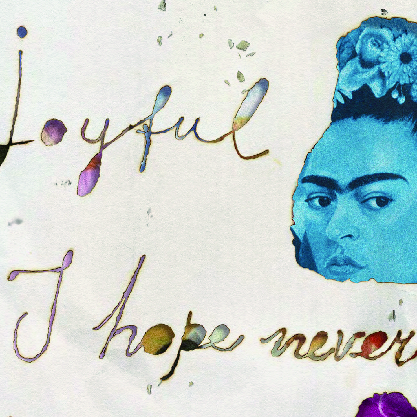 joyful
I hope never